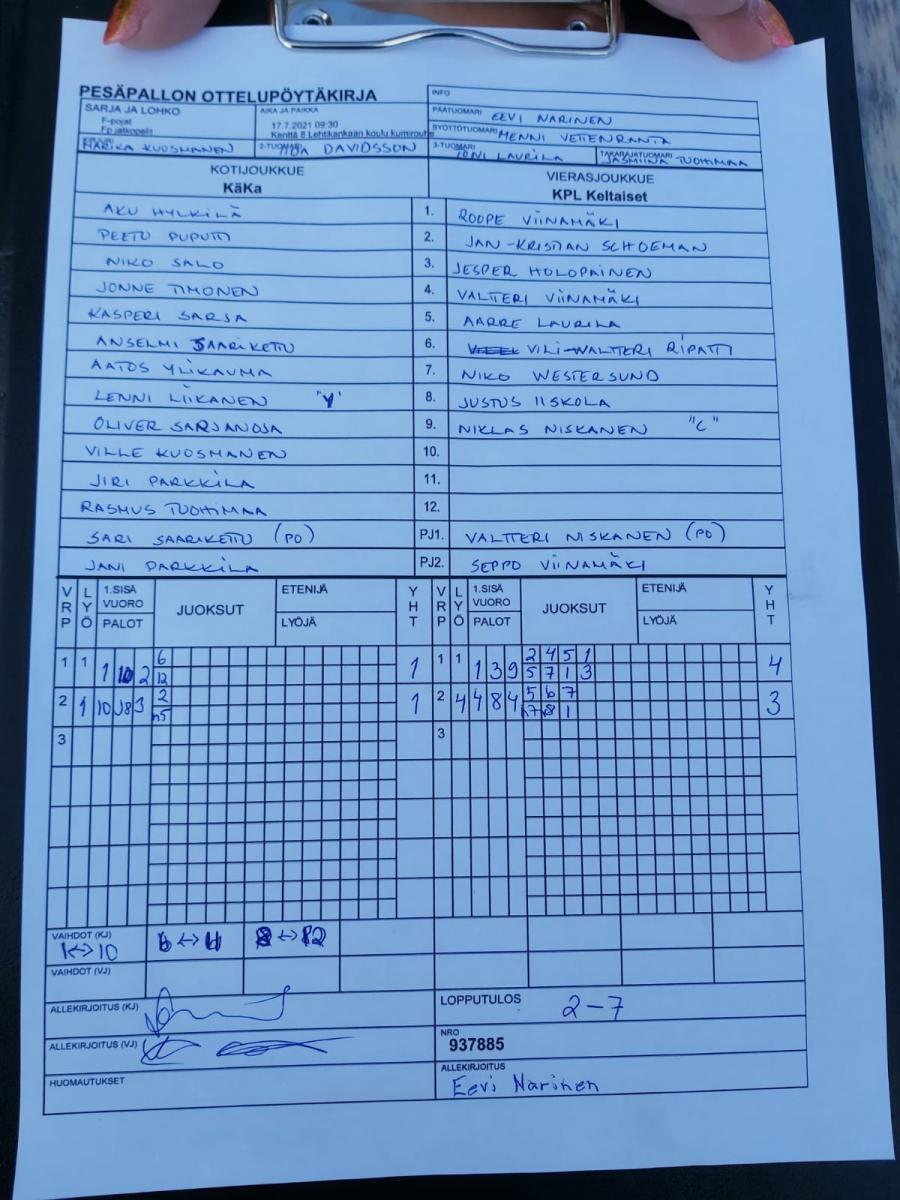 PESÄPALLON OTTELUPÖYTÄKIRJA
INFO
SARJA JA LOHKO
F-pojat
Fp jatkopelit
AIKA JA PAIKKA
17.7.2021 09:30
Kenttä 8 Lehtikankaan koulu kumirouhe
PÄÄTUOMARI EEVI NARINEN
SYÖTTÖTUOMARI HENNI VETTENRANTA
MARIKA KUOSMANEN
2-TUOMARI DAVIDSSON
3-TUOMARI TONI LAURILA
TAKARAJATUOMARI JASMIINA TUOHIMAA
KOTIJOUKKUE
KäKa
VIERASJOUKKUE
KPL Keltaiset
AKU HYLKILÄ 1. ROOPE VIINAMÄKI
PEETU PUPUTTI 2. JAN-KRISTIAN SCHOEMAN
NIKO SALO 3. JESPER HOLOPAINEN
JONNE TIMONEN 4. VALTTERI VIINAMÄKI
KASPERI SARJA 5. AARRE LAURILA
ANSELMI SAARIKETTU 6. VILI-WALTTERI RIPATTI
AATOS YLIKAUMA 7. NIKO WESTERSUND
LENNI LIIKANEN "Y" 8. JUSTUS IISKOLA
OLIVER SARJANOJA 9. NIKLAS NISKANEN "C"
VILLE KUOSMANEN 10.
JIRI PARKKILA 11.
RASMUS TUOHIMAA 12.
SARI SAARIKETTU (PO) PJ1. VALTTERI NISKANEN (PO)
JANI PARKKILA PJ2. SEPPO VIINAMÄKI
VRP LYÖ 1.SISÄ VUORO PALOT JUOKSUT ETENIJÄ LYÖJÄ YHT VRP LYÖ 1.SISÄ VUORO PALOT JUOKSUT ETENIJÄ LYÖJÄ YHT
6 2 4 5 1
1 1 1 10 2 12 1 1 1 1 3 9 5 7 1 3 4
2 5 6 7
2 9 10 8 3 h5 1 2 4 4 8 4 h7 8 1 3
3 3
VAIHDOT (KJ)
1<->10 6<->11 8<->12
VAIHDOT (VJ)
ALLEKIRJOITUS (KJ)
LOPPUTULOS 2-7
ALLEKIRJOITUS (VJ)
NRO
937885
HUOMAUTUKSET
ALLEKIRJOITUS
Eevi Narinen